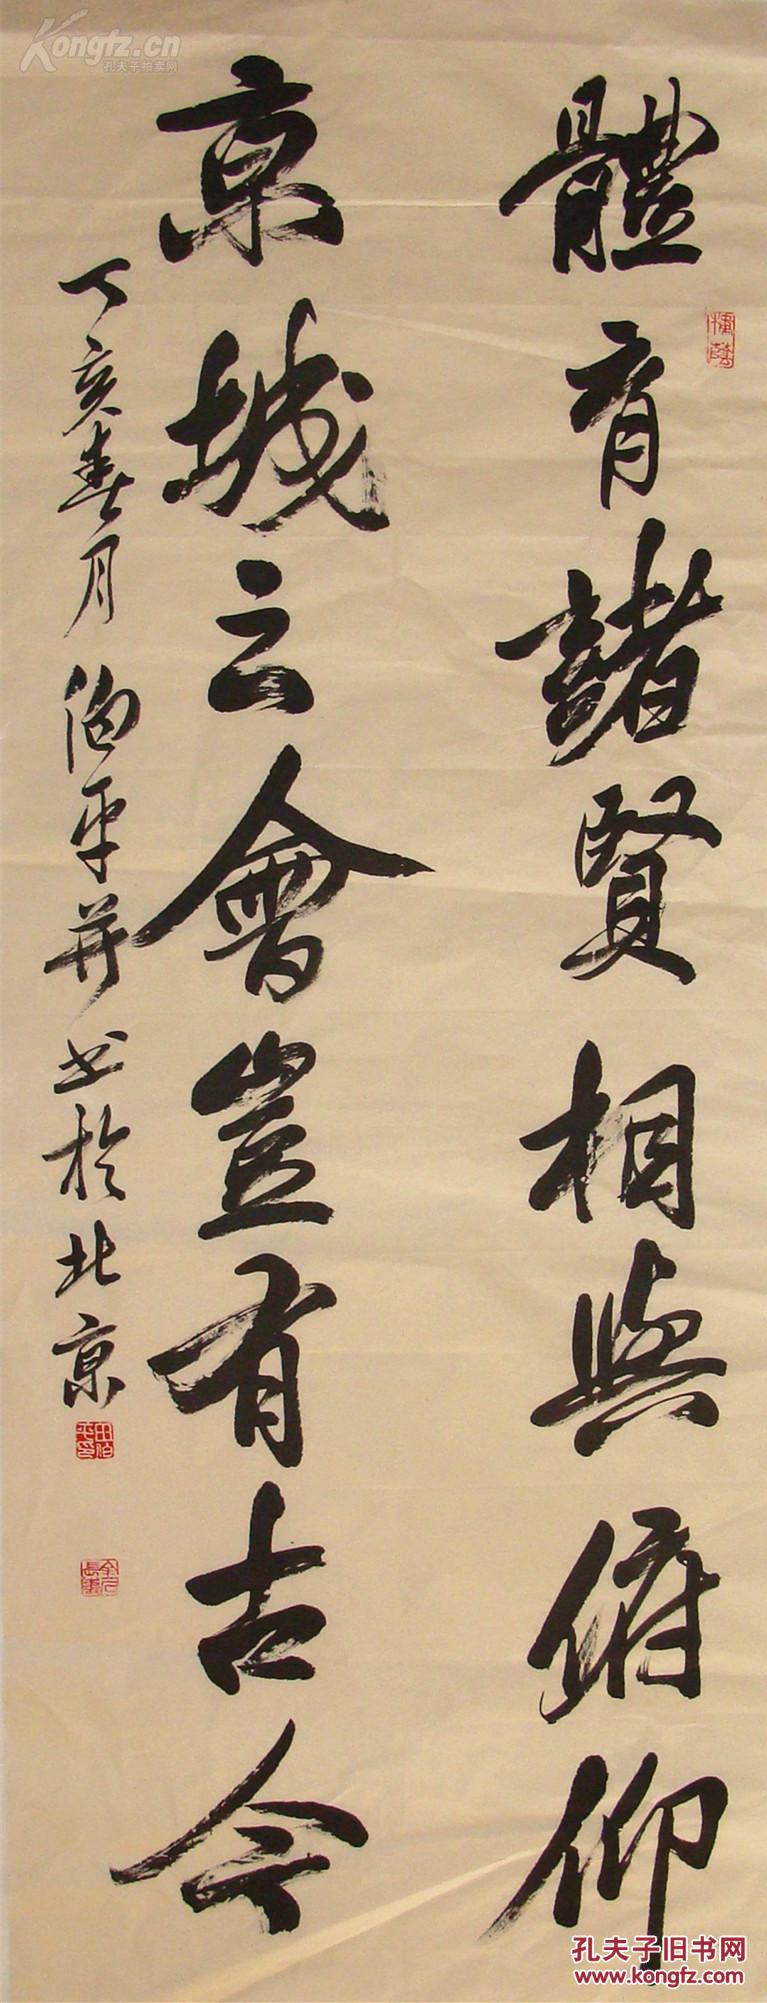 體育諸賢相與俯仰
京城云會豈有古今
丁亥春月伯平并书於北京
田伯平印
Kongfz.cn
孔夫子拍卖网
孔夫子旧书网
www.kongfz.com